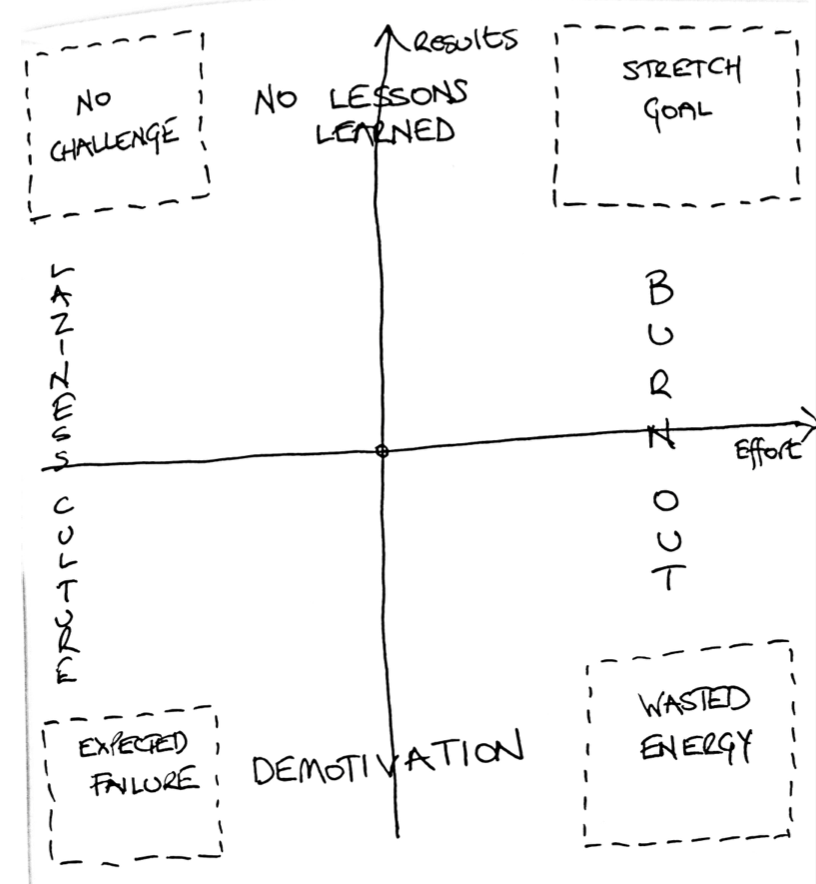 RESULTS
NO
CHALLENGE
NO LESSONS
LEARNED
STRETCH
GOAL
LAZINESS CULTURE
BURN OUT
Effort
EXPECTED
FAILURE
DEMOTIVATION
WASTED
ENERGY